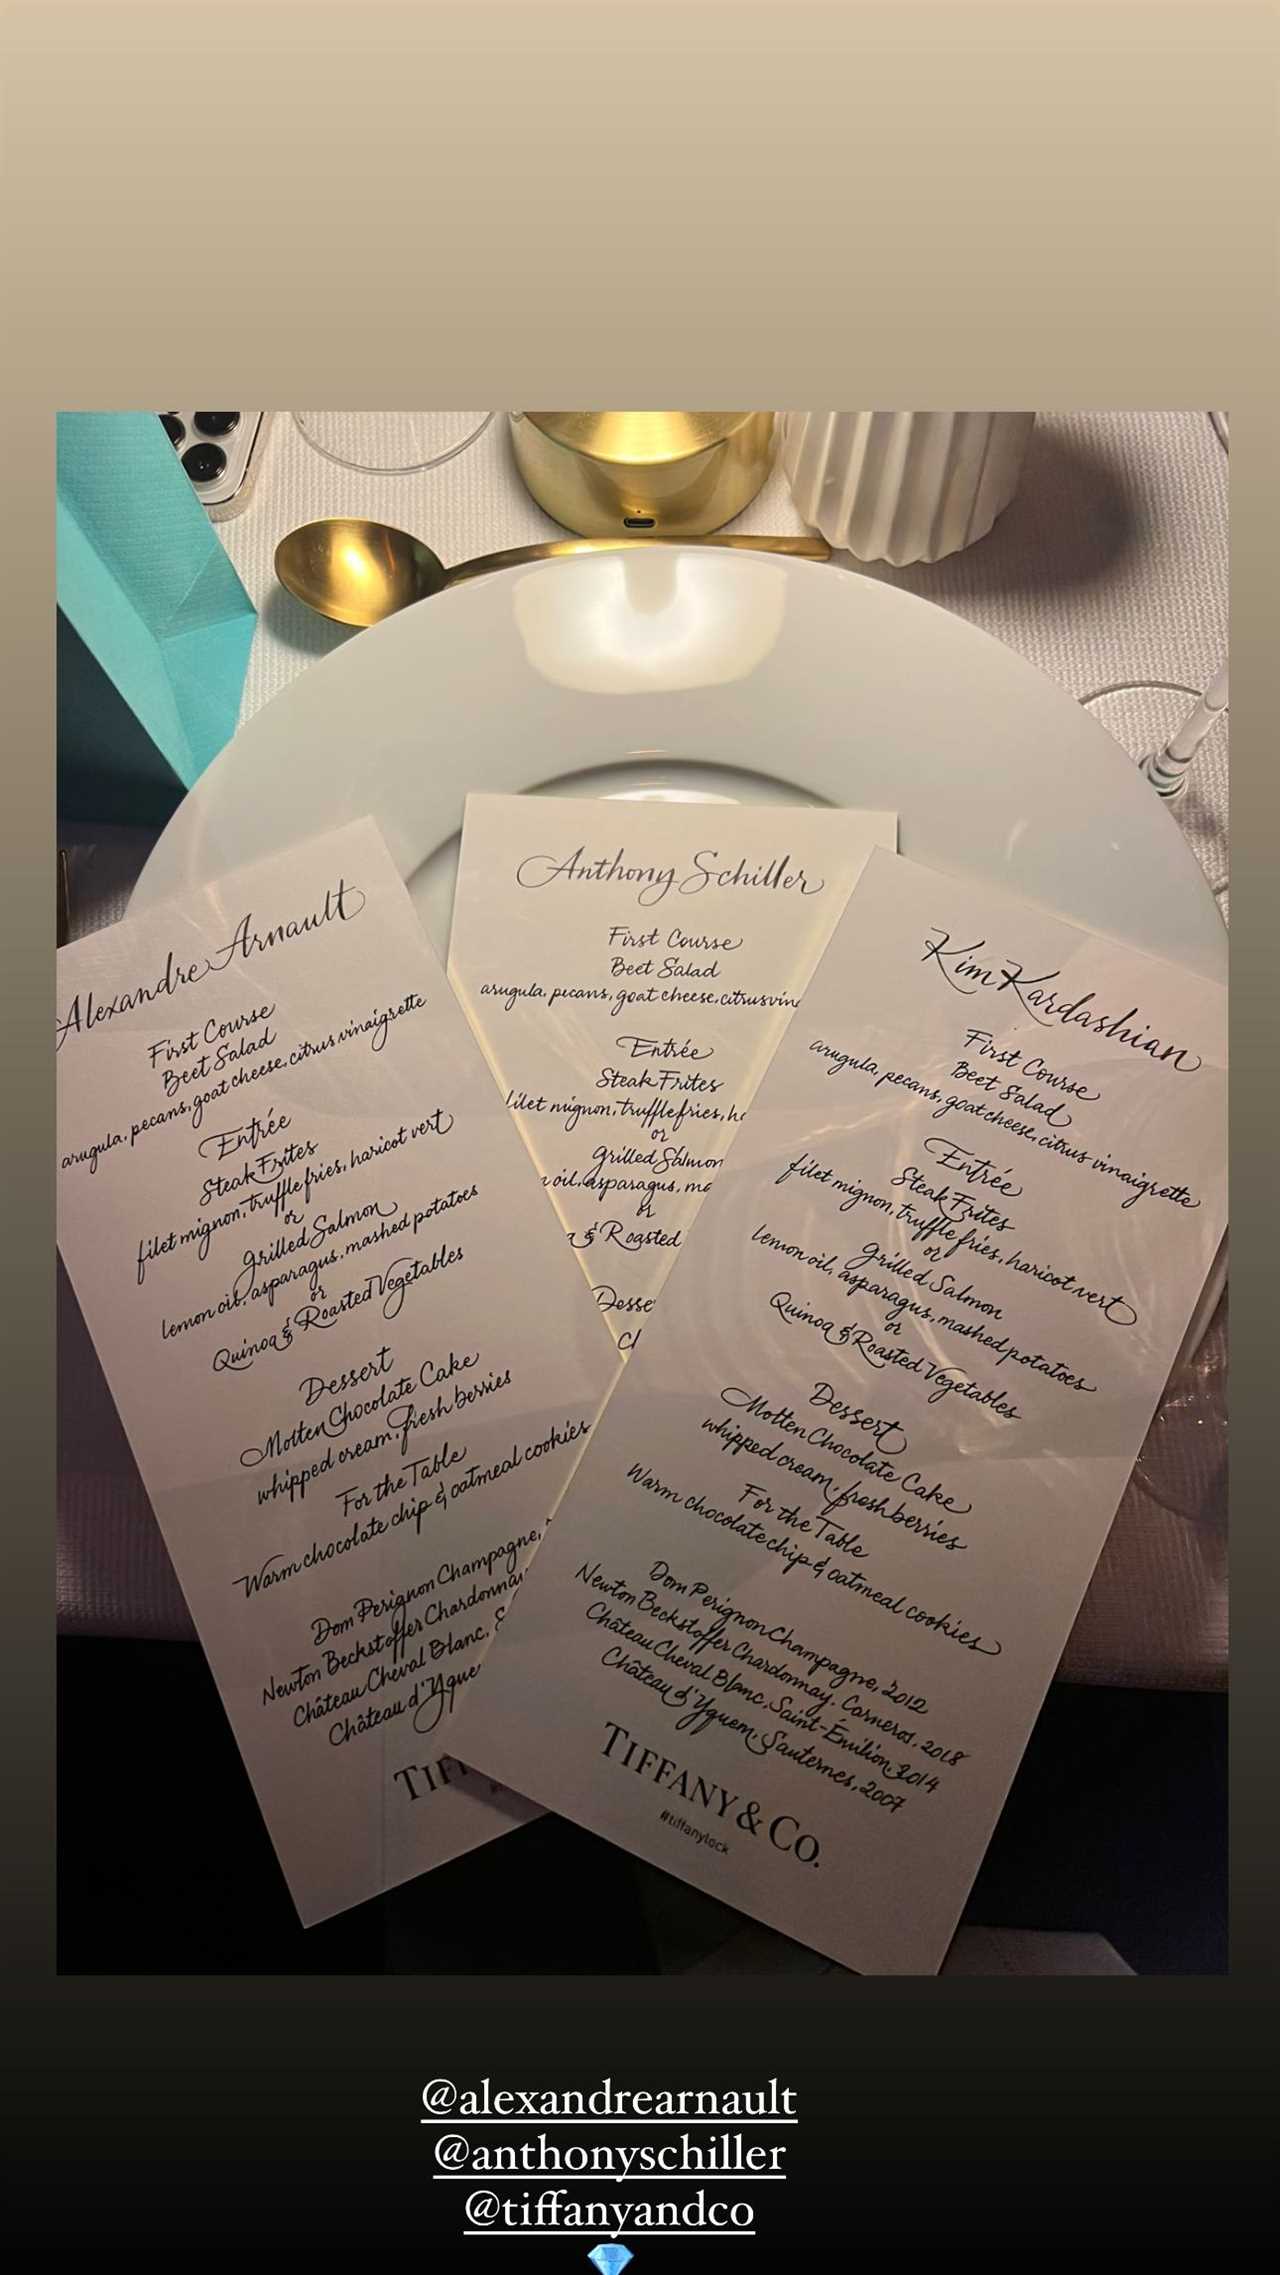 Alexandre Arnault
First Course
Beet Salad
arugula, pecans, goat cheese, citrus vinaigrette
Entrée
Steak Frites
filet mignon, truffle fries, haricot vert
or
Grilled Salmon
lemon oil, asparagus, mashed potatoes
or
Quinoa & Roasted Vegetables
Dessert
Molten Chocolate Cake
whipped cream, fresh berries
For the Table
Warm chocolate chip & oatmeal cookies
Dom Perignon Champagne,
Newton Beckstoffer Chardonnay
Château Cheval Blanc,
Château d'Yque
TIF
Anthony Schiller
First Course
Beet Salad
arugula, pecans, goat cheese, citrus vin
Entrée
Steak Frites
filet mignon, truffle fries, ha
or
Grilled Salmon
oil, asparagus, ma
or
& Roasted
Desse
Kim Kardashian
First Course
Beet Salad
arugula, pecans, goat cheese, citrus vinaigrette
Entrée
Steak Frites
filet mignon, truffle fries, haricot vert
or
Grilled Salmon
lemon oil, asparagus, mashed potatoes
or
Quinoa & Roasted Vegetables
Dessert
Molten Chocolate Cake
whipped cream, fresh berries
For the Table
Warm chocolate chip & oatmeal cookies
Dom Perignon Champagne, 2012
Newton Beckstoffer Chardonnay, Carneros, 2018
Château Cheval Blanc, Saint-Émilion, 2014
Château d'Yquem, Sauternes, 2007
TIFFANY & CO.
#tiffanylock
@alexandrearnault
@anthonyschiller
@tiffanyandco